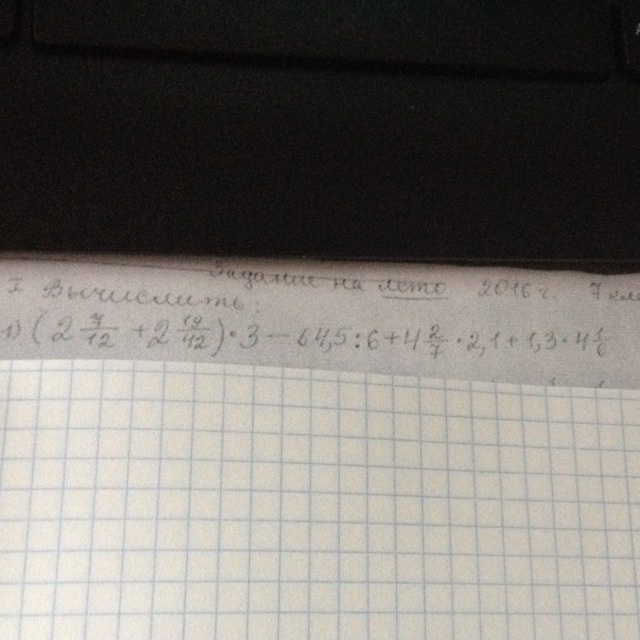 Задание на лето 2016 г. 7
I Вычислить:
1) (2 7/12 + 2 12/12) · 3 - 64,5 : 6 + 4 2/7 · 2,1 + 1,3 · 4 1/6